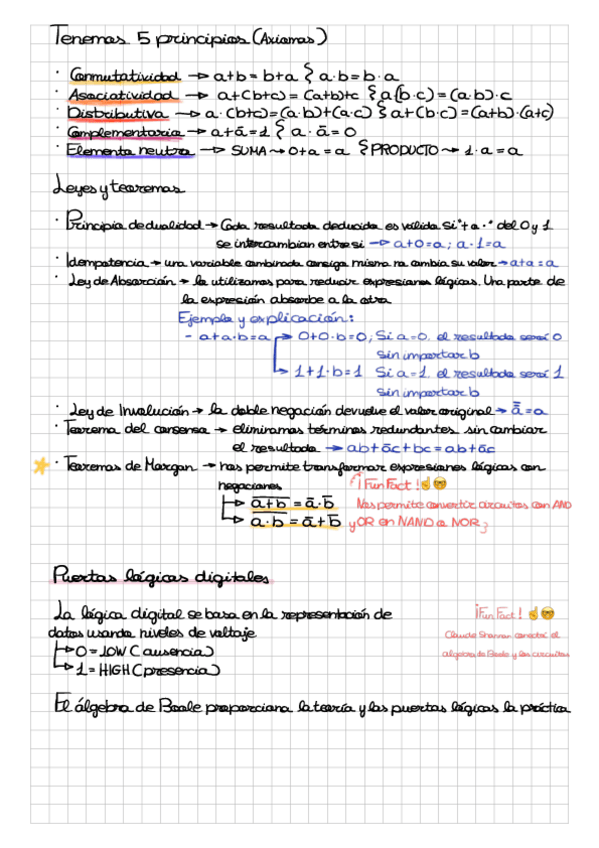 Tenemos 5 principios (Axiomas)
· Conmutatividad → a+b = b+a { a·b = b·a
· Asociatividad → a+(b+c) = (a+b)+c { a(b·c) = (a·b)·c
· Distributiva → a·(b+c)=(a·b)+(a·c) { a+(b·c)=(a+b)·(a+c)
· Complementario → a+ā=1 { a·ā=0
· Elemento neutro → SUMA → 0+a=a { PRODUCTO → 1·a=a
Leyes y teoremas
· Principio de dualidad → Cada resultado deducido es valido si "+ a ·" del 0 y 1
se intercambian entre si → a+0=a; a·1=a
· Idempotencia → una variable combinada consigo misma no cambia su valor → a+a=a
· Ley de Absorción → la utilizamos para reducir expresiones lógicas. Una parte de
la expresión absorbe a la otra
Ejemplo y explicación:
- a+a·b=a → 0+0·b=0; Si a=0, el resultado será 0
sin importar b
→ 1+1·b=1 Si a=1, el resultado será 1
sin importar b
· Ley de Involución → la doble negación devuelve el valor original → a̿=a
· Teorema del consenso → eliminamos términos redundantes sin cambiar
el resultado → ab+āc+bc=ab+āc
⭐ · Teoremas de Morgan → nos permite transformar expresiones lógicas con
negaciones ¡Fun Fact!☝️🤓
→ a̅+̅b̅ = ā·b̄ Nos permite convertir circuitos con AND
→ a̅·̅b̅ = ā+b̄ y OR en NAND o NOR;
Puertas lógicas digitales
La lógica digital se basa en la representación de ¡Fun Fact! ☝️🤓
datos usando niveles de voltaje Claude Shannon conectó el
→ 0=LOW (ausencia) algebra de Boole y los circuitos
→ 1=HIGH (presencia)
El álgebra de Boole proporciona la teoría y las puertas lógicas la práctica